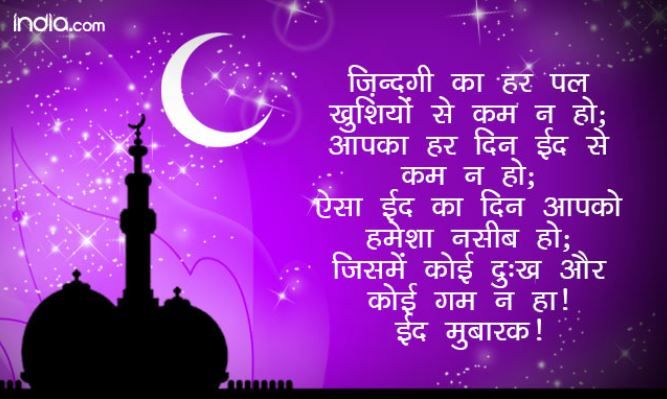 india.com
ज़िन्दगी का हर पल
खुशियों से कम न हो;
आपका हर दिन ईद से
कम न हो;
ऐसा ईद का दिन आपको
हमेशा नसीब हो;
जिसमें कोई दुःख और
कोई गम न हा!
ईद मुबारक!